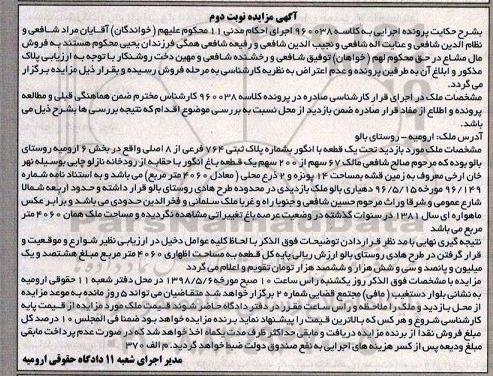 آگهی مزایده نوبت دوم
بشرح حکایت پرونده اجرایی به کلاسه ۹۶۰۰۳۸ اجرای احکام مدنی ۱۱ محکوم علیهم (خواندگان) آقایان مراد شافعی و
نظام الدین شافعی و عنایت اله شافعی و نجیب الدین شافعی و رفیعه شافعی همگی فرزندان یحیی محکوم هستند به فروش
مال مشاع در حق محکوم لهم (خواهان) توفیق شافعی و رخشنده شافعی و مهین دخت روشنکار با توجه به ارزیابی پلاک
مذکور و ابلاغ آن به طرفین پرونده و عدم اعتراض به نظریه کارشناسی به مرحله فروش رسیده و بقرار ذیل مزایده برگزار
می گردد.
مشخصات ملک در اجرای قرار کارشناسی صادره در پرونده کلاسه ۹۶۰۰۳۸ کارشناس محترم ضمن هماهنگی قبلی و مطالعه
پرونده و اطلاع از مفاد قرار صادره ضمن بازدید از محل نسبت به بررسی موضوع اقدام که نتیجه بررسی ها بشرح ذیل می
باشد.
آدرس ملک: ارومیه - روستای بالو
مشخصات ملک مورد بازدید تحت یک قطعه باغ انگور بشماره پلاک ثبتی ۷۶۴ فرعی از ۸ اصلی واقع در بخش ۶ ارومیه روستای
بالو بوده که مرحوم صالح شافعی مالک ۶۷ سهم از ۲۰۰ سهم یک قطعه باغ انگور با حقابه از رودخانه نازلو چایی بوسیله نهر
خان ارخی معروف به زمین قشه بمساحت ۱۴ پونزه و ۲ ذرع محلی (معادل ۴۰۶۰ متر مربع) می باشد و به استناد نامه شماره
۹۶/۱۴۹ مورخه ۹۶/۵/۱۵ دهیاری بالو ملک بازدیدی در محدوده طرح هادی روستای بالو قرار داشته و حدود اربعه شمالا
شارع عمومی و شرقا وراث مرحوم حسین شافعی و جنوبا راه و غربا ملک سلمانی و فخرالدین حدودی می باشد و برابر عکس
ماهواره ای سال ۱۳۸۱ در سنوات گذشته در وضعیت عرصه باغ تغییراتی مشاهده نگردیده و مساحت ملک همان ۴۰۶۰ متر
مربع می باشد
نتیجه گیری نهایی با مد نظر قرار دادن توضیحات فوق الذکر با لحاظ کلیه عوامل دخیل در ارزیابی نظیر شوارع و موقعیت و
قرار گرفتن در طرح هادی روستای بالو ارزش ریالی پایه کل قطعه به مساحت اظهاری ۴۰۶۰ متر مربع مبلغ هشتصد و یک
میلیون و پانصد و سی و شش هزار و ششصد هزار تومان تقویم و اعلام می گردد
مزایده با مشخصات فوق الذکر روز یکشنبه راس ساعت ۱۰ صبح مورخه ۱۳۹۸/۵/۶ در محل دفتر شعبه ۱۱ حقوقی ارومیه
به نشانی بلوار دستغیب (مافی) مجتمع قضایی شماره ۲ برگزار خواهد شد متقاضیان می تواند ۵ روز مانده به موعد مزایده
از محل بازدید و ملک را ملاحظه و راس ساعت مقرر در دفتر دادگاه حاضر شوند قیمت ملک مورد مزایده از قیمت پایه
کارشناسی شروع و هر کس که بالاترین قیمت را پیشنهاد نماید برنده مزایده خواهد بود ضمنا فی المجلس ۱۰ درصد کل
مبلغ فروش نقدا از برنده مزایده دریافت و مابقی حداکثر ظرف مدت یکماه اخذ خواهد شد که در صورت عدم پرداخت مابقی
مبلغ ودیعه پس از کسر هزینه های اجرایی به نفع صندوق دولت ضبط خواهد گردید. م الف ۳۷۰
مدیر اجرای شعبه ۱۱ دادگاه حقوقی ارومیه